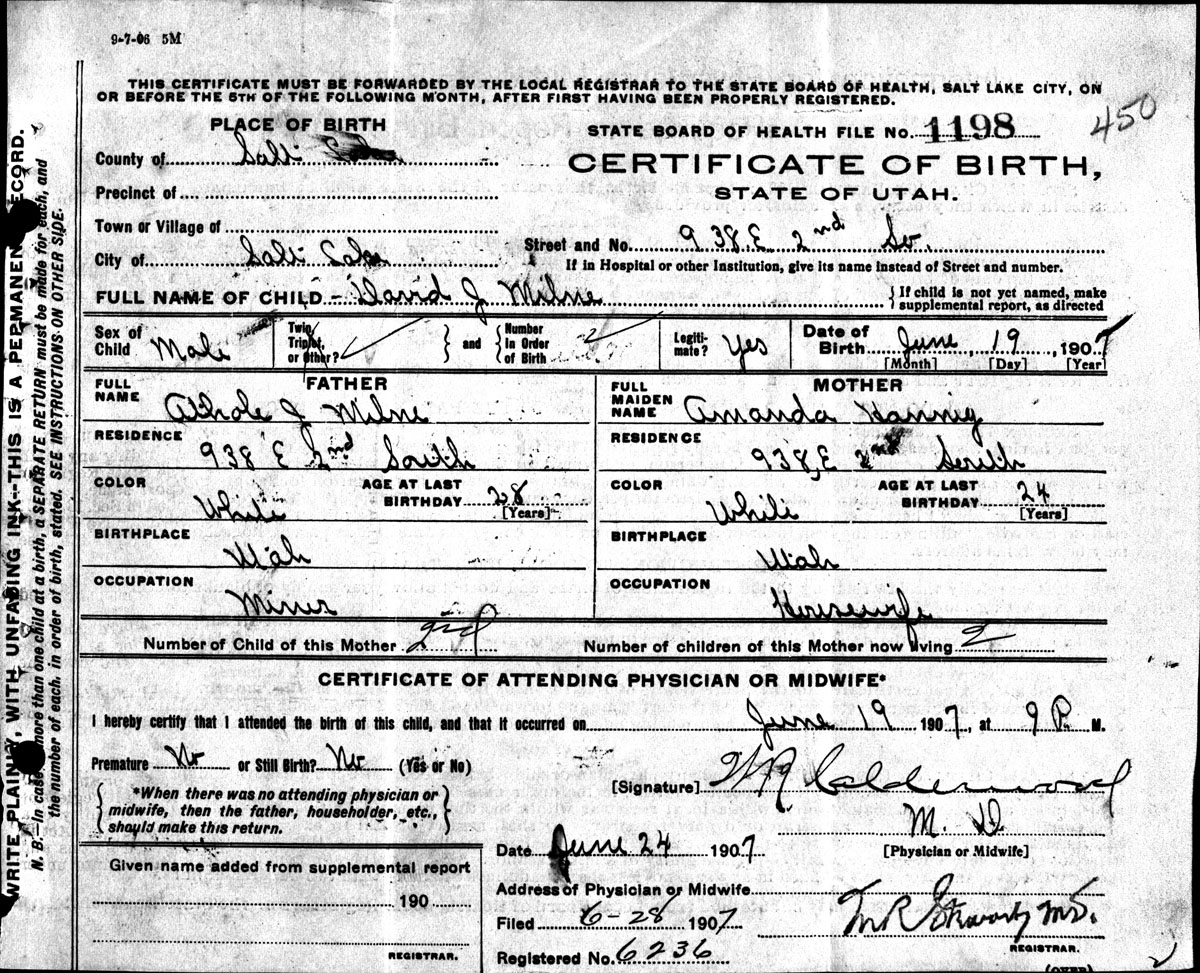 9-7-06 5M
THIS CERTIFICATE MUST BE FORWARDED BY THE LOCAL REGISTRAR TO THE STATE BOARD OF HEALTH, SALT LAKE CITY, ON
OR BEFORE THE 5TH OF THE FOLLOWING MONTH, AFTER FIRST HAVING BEEN PROPERLY REGISTERED.
450
PLACE OF BIRTH
STATE BOARD OF HEALTH FILE No. 1198
County of Salt Lake
CERTIFICATE OF BIRTH,
STATE OF UTAH.
Precinct of
Town or Village of
Street and No. 938 E 2nd So.
City of Salt Lake
If in Hospital or other Institution, give its name instead of Street and number.
FULL NAME OF CHILD - David J Milne
{If child is not yet named, make supplemental report, as directed
Sex of Child Male
Twin, Triplet, or Other?
} and {
Number In Order of Birth 2
Legiti-mate? Yes
Date of Birth June 19, 1907
[Month] [Day] [Year]
FATHER
MOTHER
FULL NAME Athole J Milne
FULL MAIDEN NAME Amanda Hannig
RESIDENCE 938 E 2nd South
RESIDENCE 938 E 2nd South
COLOR White
AGE AT LAST BIRTHDAY 28 [Years]
COLOR White
AGE AT LAST BIRTHDAY 24 [Years]
BIRTHPLACE Utah
BIRTHPLACE Utah
OCCUPATION Miner
OCCUPATION Housewife
Number of Child of this Mother 2nd
Number of children of this Mother now living 2
CERTIFICATE OF ATTENDING PHYSICIAN OR MIDWIFE*
I hereby certify that I attended the birth of this child, and that it occurred on June 19 1907, at 9 P. M.
Premature No or Still Birth? No (Yes or No)
[Signature] Calderwood
*When there was no attending physician or
midwife, then the father, householder, etc.,
should make this return.
M. D
Date June 24 1907
[Physician or Midwife]
Given name added from supplemental report
190
REGISTRAR.
Address of Physician or Midwife
Filed 6-28 1907
M.D.
REGISTRAR.
Registered No. 6236
(OVER)
WRITE PLAINLY, WITH UNFADING INK--THIS IS A PERMANENT RECORD.
N. B.--In case more than one child at a birth, a SEPARATE RETURN must be made for each, and
the number of each, in order of birth, stated. SEE INSTRUCTIONS ON OTHER SIDE.